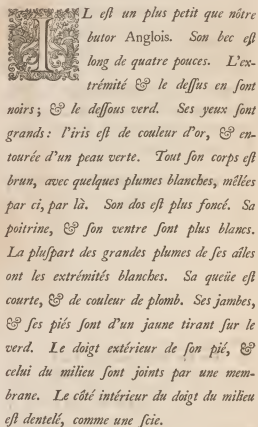 IL eſt un plus petit que nôtre
butor Anglois. Son bec eſt
long de quatre pouces. L'ex-
trémité & le deſſus en ſont
noirs; & le deſſous verd. Ses yeux ſont
grands: l'iris eſt de couleur d'or, & en-
tourée d'un peau verte. Tout ſon corps eſt
brun, avec quelques plumes blanches, mêlées
par ci, par là. Son dos eſt plus foncé. Sa
poitrine, & ſon ventre ſont plus blancs.
La pluſpart des grandes plumes de ſes aîles
ont les extrémités blanches. Sa queüe eſt
courte, & de couleur de plomb. Ses jambes,
& ſes piés ſont d'un jaune tirant ſur le
verd. Le doigt extérieur de ſon pié, &
celui du milieu ſont joints par une mem-
brane. Le côté intérieur du doigt du milieu
eſt dentelé, comme une ſcie.